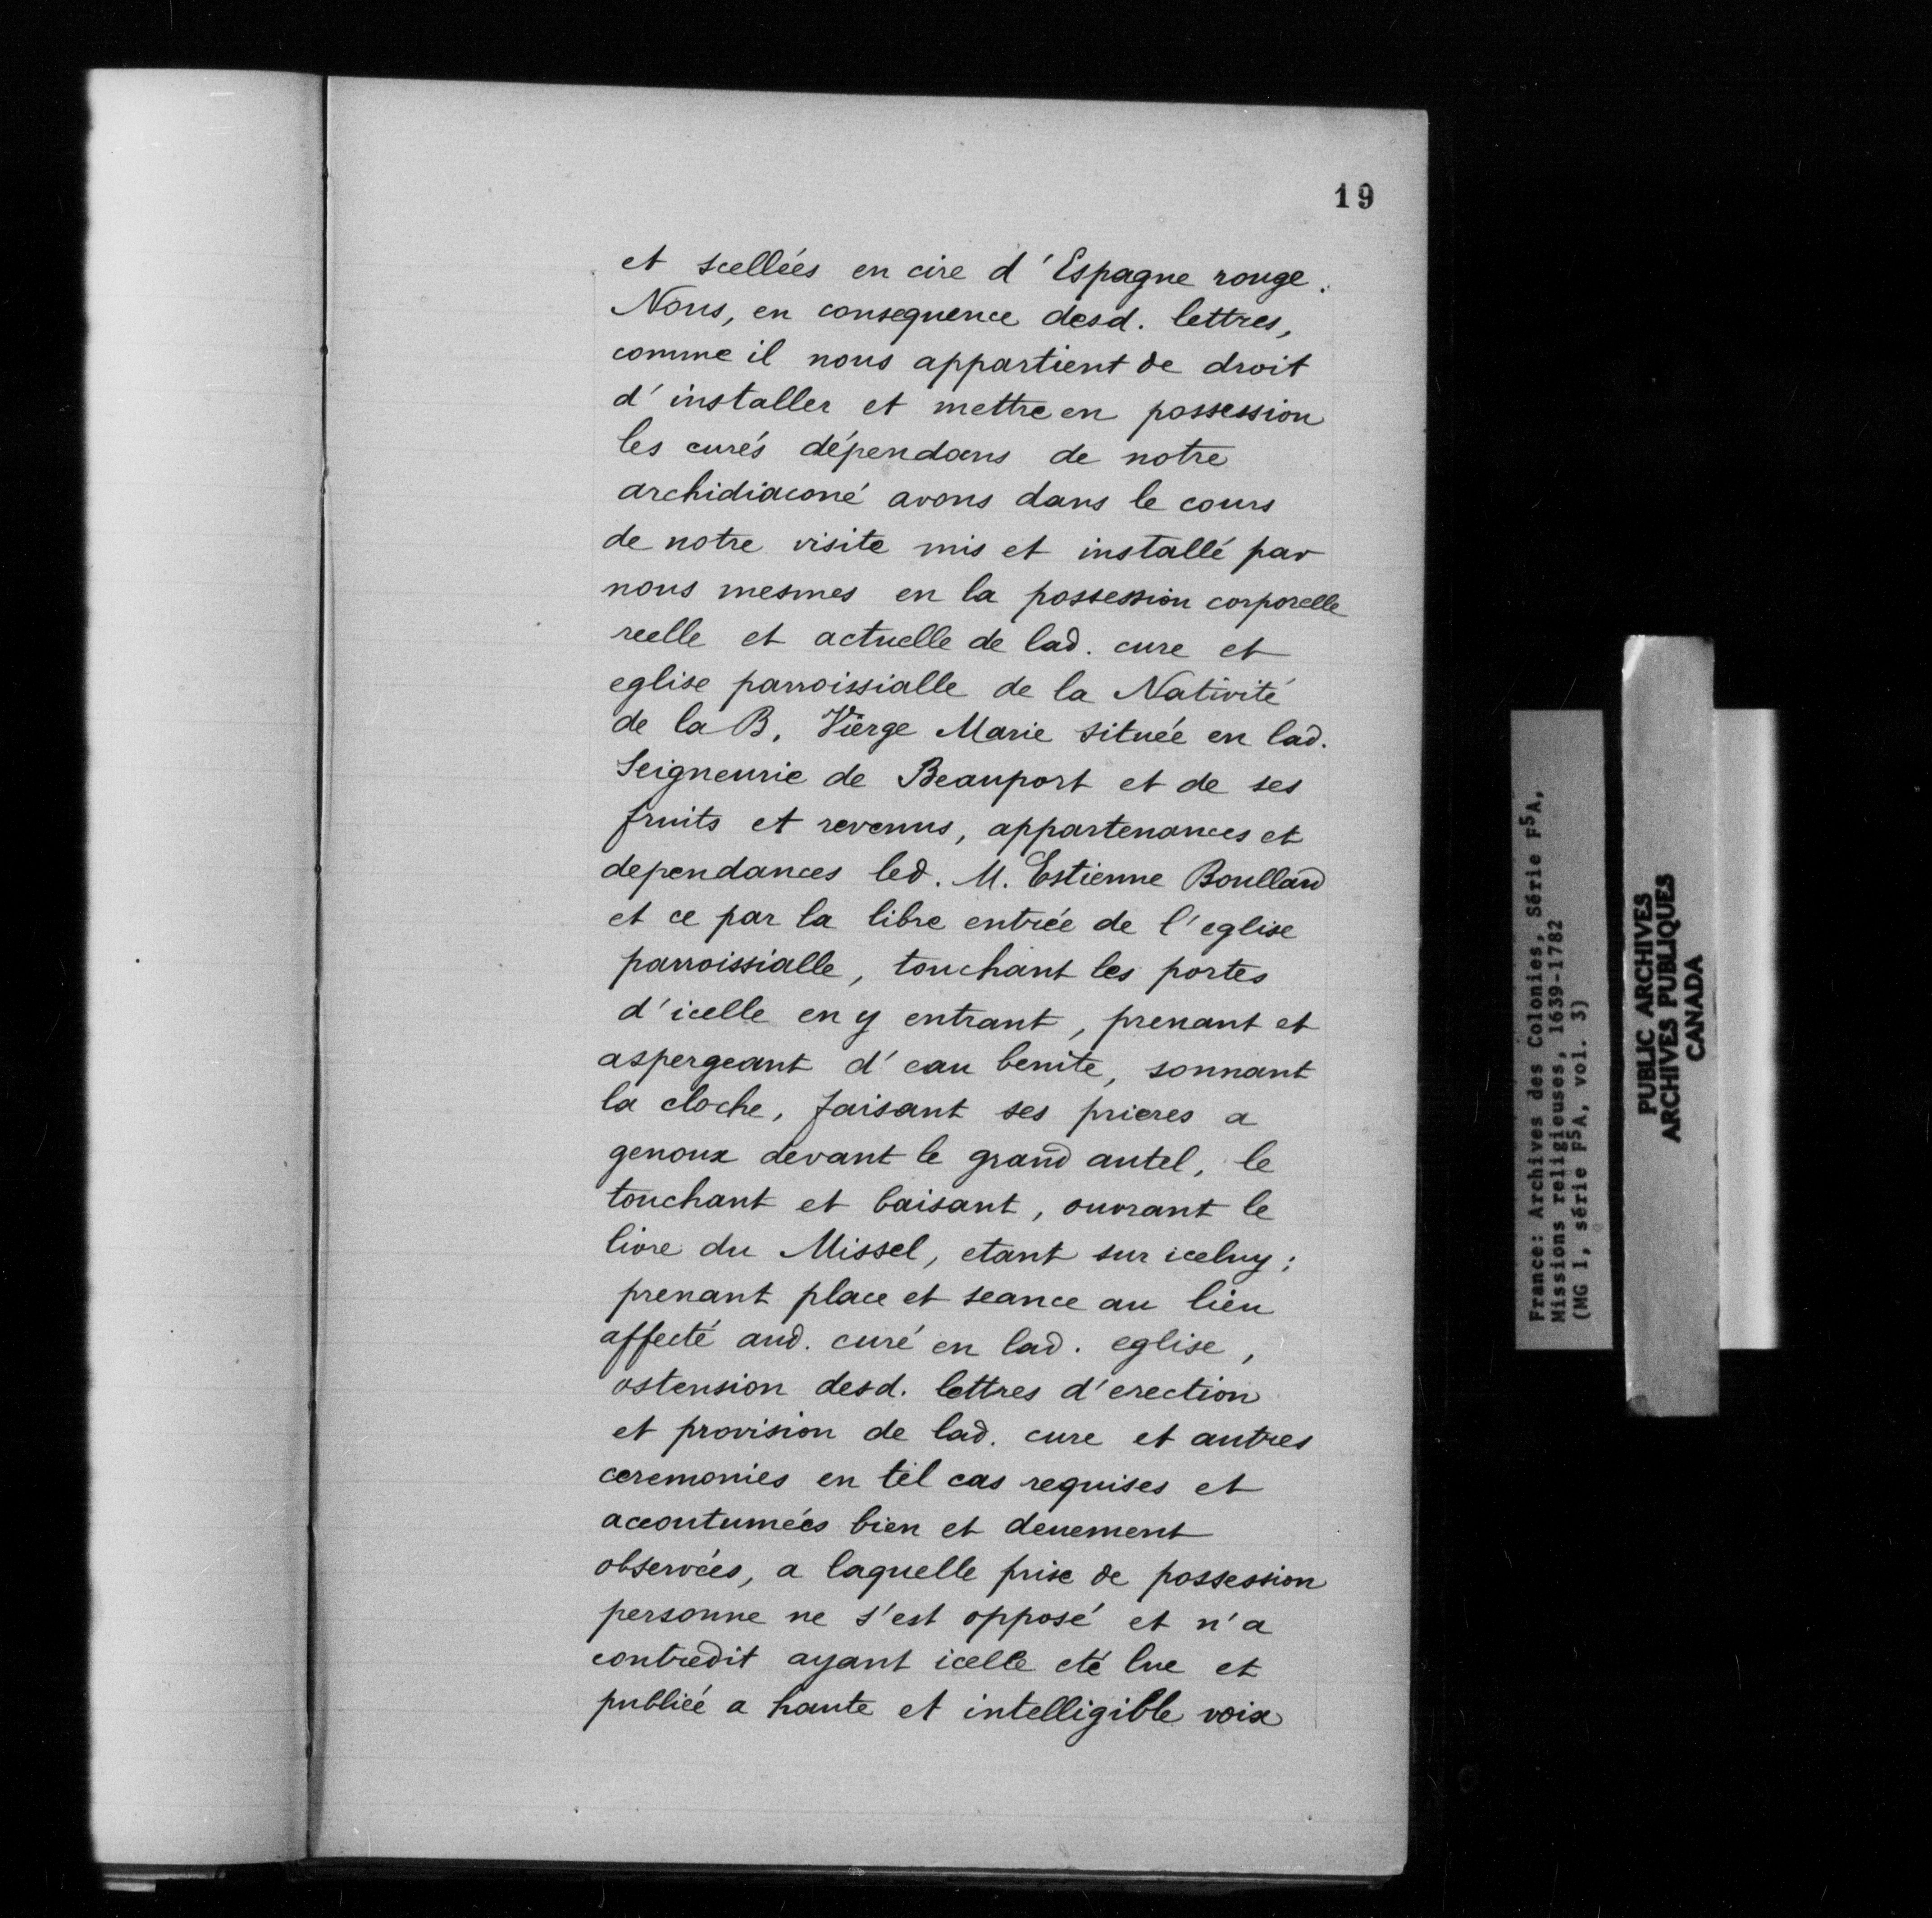 19
et scellées en cire d'Espagne rouge.
Nous, en consequence desd. lettres,
comme il nous appartient de droit
d'installer et mettre en possession
les curés dépendans de notre
archidiaconé avons dans le cours
de notre visite mis et installé par
nous mesmes en la possession corporelle
reelle et actuelle de lad. cure et
eglise parroissialle de la Nativité
de la B. Vierge Marie située en lad.
Seigneurie de Beauport et de ses
fruits et revenus, appartenances et
dependances led. M. Estienne Boullard
et ce par la libre entrée de l'eglise
parroissialle, touchant les portes
d'icelle en y entrant, prenant et
aspergeant d'eau benite, sonnant
la cloche, faisant ses prieres a
genoux devant le grand autel, le
touchant et baisant, ouvrant le
livre du Missel, etant sur iceluy;
prenant place et seance au lieu
affecté aud. curé en lad. eglise,
ostension desd. lettres d'erection
et provision de lad. cure et autres
ceremonies en tel cas requises et
accoutumées bien et deuement
observées, a laquelle prise de possession
personne ne s'est opposé et n'a
contredit ayant icelle eté lue et
publiée a haute et intelligible voix
France: Archives des Colonies, Série F5A,
Missions religieuses, 1639-1782
(MG 1, série F5A, vol. 3)
PUBLIC ARCHIVES
ARCHIVES PUBLIQUES
CANADA